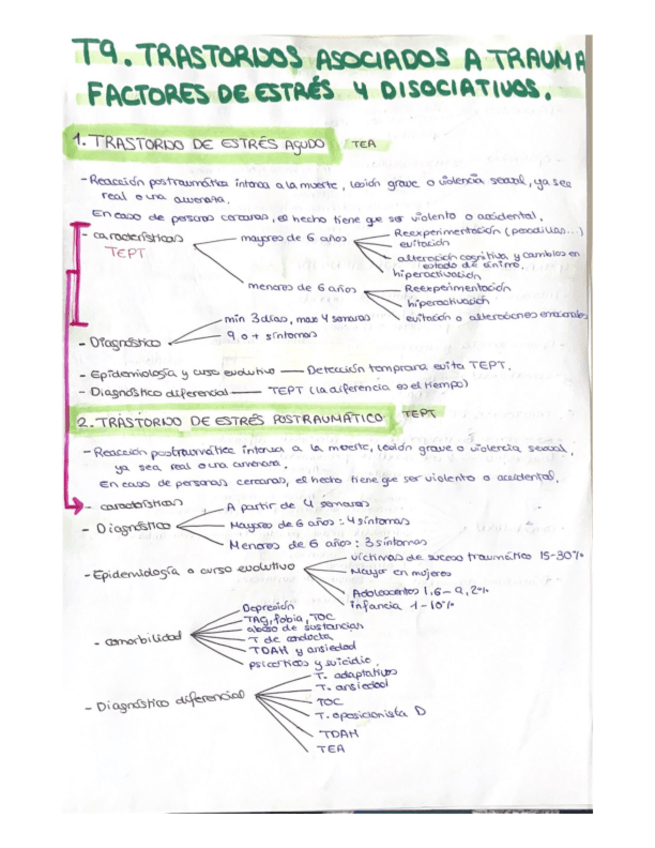 T9. TRASTORNOS ASOCIADOS A TRAUMA
FACTORES DE ESTRÉS Y DISOCIATIVOS.
1. TRASTORNO DE ESTRÉS AGUDO TEA
- Reacción postraumática intensa a la muerte, lesión grave o violencia sexual, ya sea
real o una amenaza.
En caso de personas cercanas, el hecho tiene que ser violento o accidental.
- características
TEPT
mayores de 6 años
Reexperimentación (pesadillas...)
evitación
alteración cognitiva y cambios en
estado de ánimo.
hiperactivación
menores de 6 años
Reexperimentación
hiperactivación
evitación o alteraciones emocionales
- Diagnóstico
min 3 días, max 4 semanas
9 o + síntomas
- Epidemiología y curso evolutivo — Detección temprana evita TEPT.
- Diagnóstico diferencial — TEPT (la diferencia es el tiempo)
2. TRASTORNO DE ESTRÉS POSTRAUMÁTICO TEPT
- Reacción postraumática intensa a la muerte, lesión grave o violencia sexual,
ya sea real o una amenaza.
En caso de personas cercanas, el hecho tiene que ser violento o accidental.
- características
- Diagnóstico
A partir de 4 semanas
Mayores de 6 años : 4 síntomas
Menores de 6 años : 3 síntomas
- Epidemiología o curso evolutivo
víctimas de suceso traumático 15-30%
Mayor en mujeres
Adolescentes 1,6 - 9,2%
infancia 1-10%
- comorbilidad
Depresión
TAG, fobia, TOC
abuso de sustancias
T de conducta
TDAH y ansiedad
psicóticos y suicidio.
- Diagnóstico diferencial
T. adaptativos
T. ansiedad
TOC
T. oposicionista D
TDAH
TEA